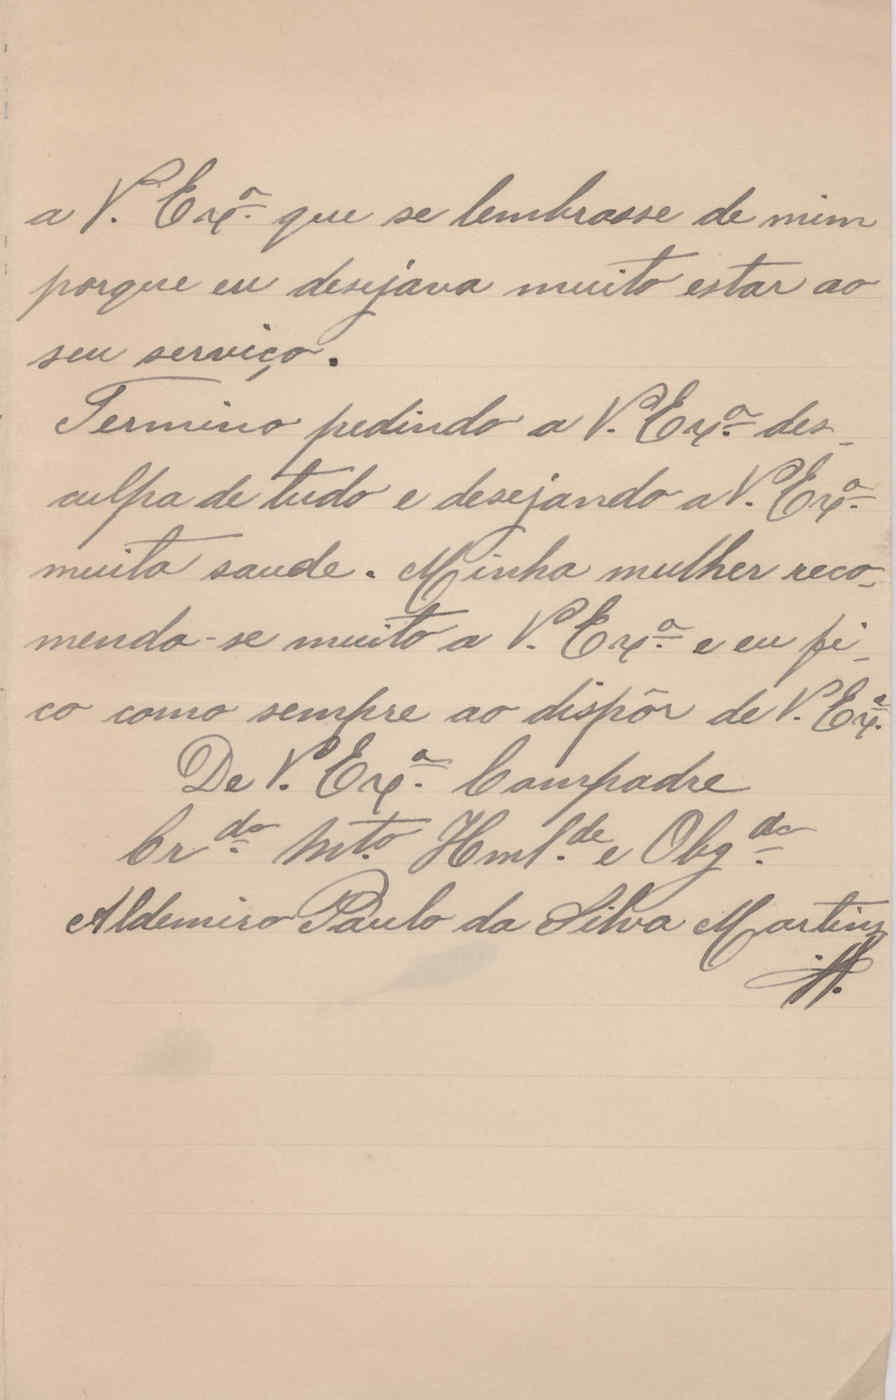 a V. Exª. que se lembrasse de mim
porque eu desejava muito estar ao
seu serviço.
Termino pedindo a V. Exª. des-
culpa de tudo e desejando a V. Exª.
muita saude. Minha mulher reco-
menda-se muito a V. Exª. e eu fi-
co como sempre ao dispôr de V. Exª.
De V. Exª. Compadre
Crdo. Mto. Humlde. e Obgdo.
Aldemiro Paulo da Silva Martins